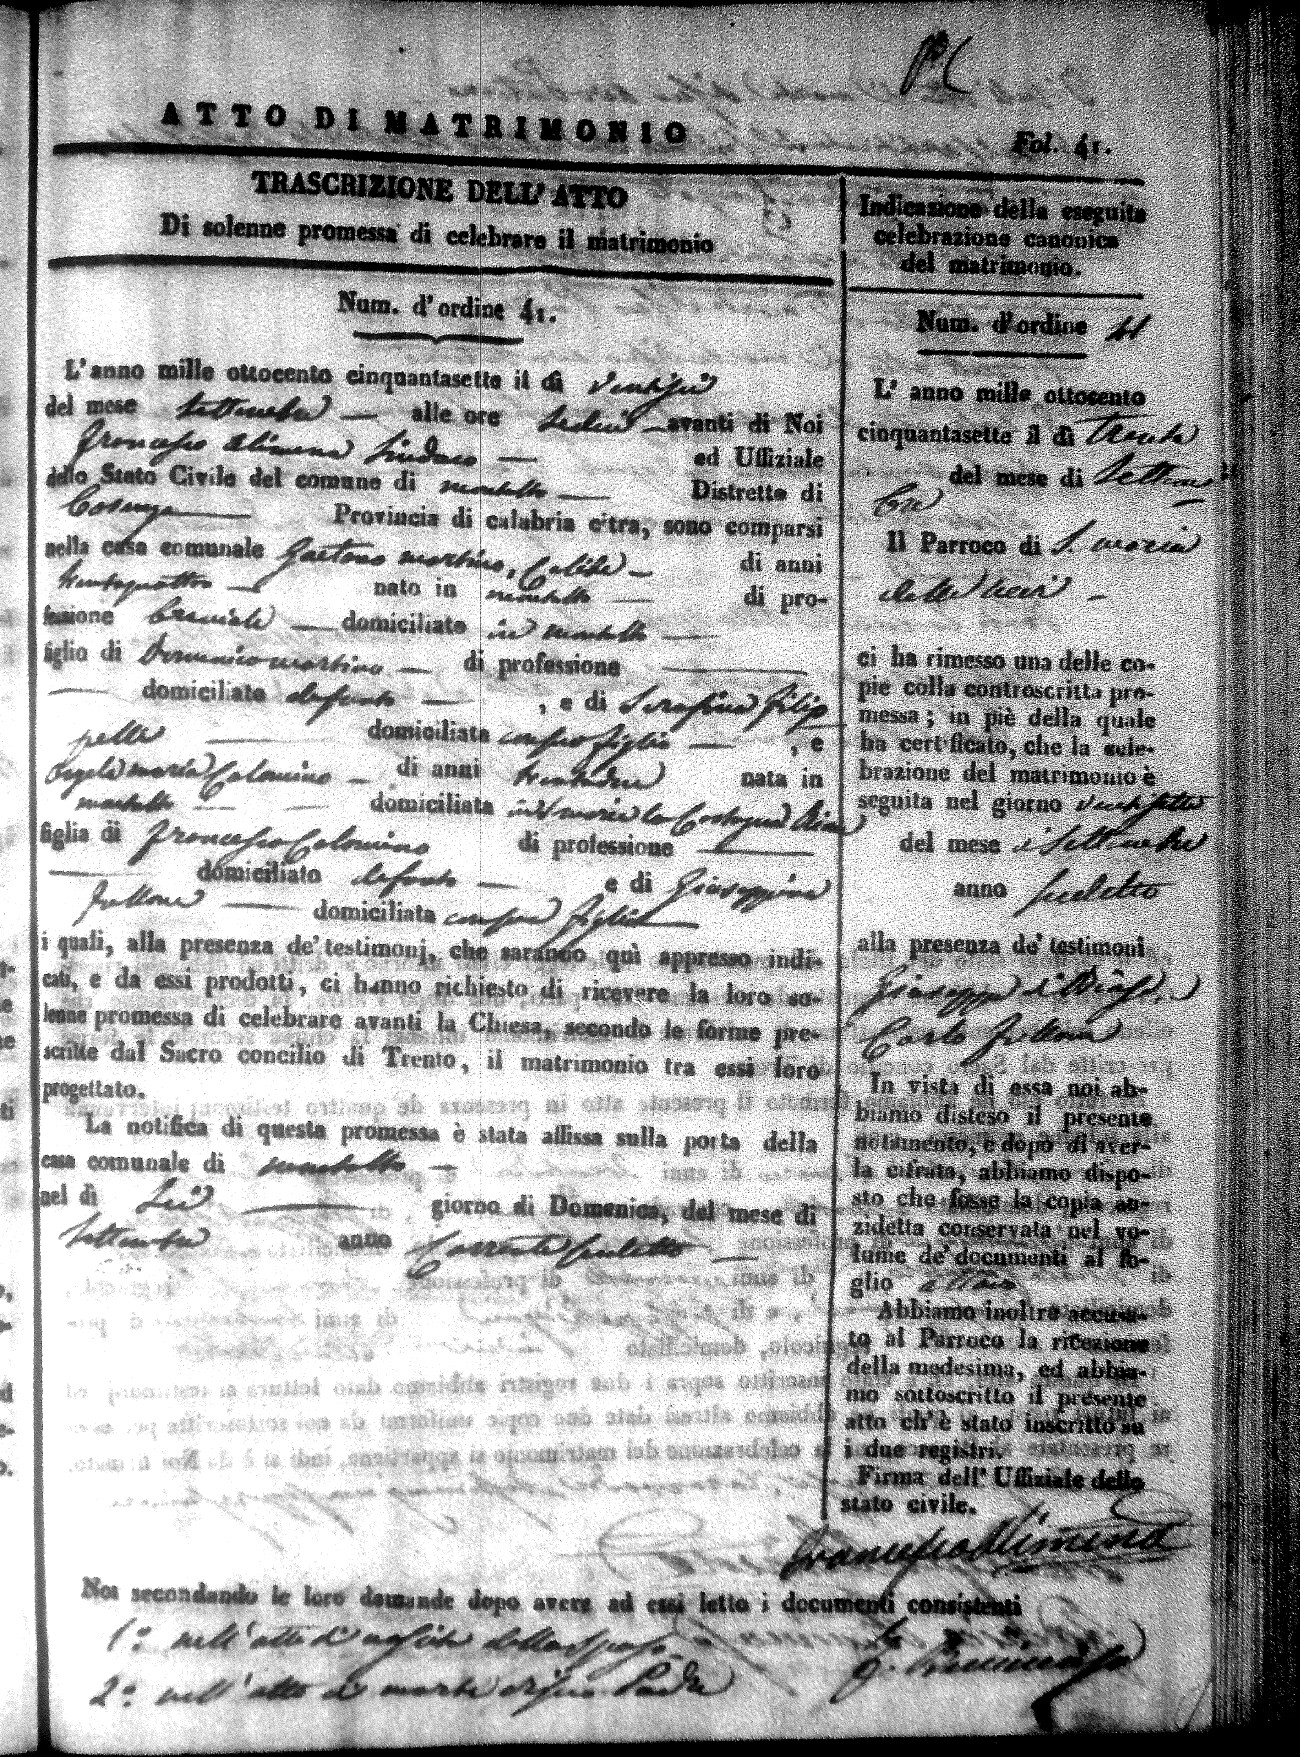 ATTO DI MATRIMONIO
Fol. 41.
TRASCRIZIONE DELL' ATTO
Di solenne promessa di celebrare il matrimonio
Num. d'ordine 41.
L'anno mille ottocento cinquantasette il dì ventisei
del mese Settembre alle ore sedici avanti di Noi
Francesco Alimena Sindaco ed Uffiziale
dello Stato Civile del comune di Montalto Distretto di
Cosenza Provincia di calabria citra, sono comparsi
nella casa comunale Gaetano Martino, Celibe di anni
trentaquattro nato in Montalto di pro-
fessione domiciliato in Montalto
figlio di Domenico Martino di professione
domiciliato defonto , e di Serafina Filip
pelli domiciliata con suo figlio , e
Angela Maria Colomino di anni nata in
Montalto domiciliata in S. Maria la Castagna
figlia di Francesco Colomino di professione
domiciliato defonto e di Giuseppina
domiciliata con sua figlia
i quali, alla presenza de' testimonj, che saranno quì appresso indi-
cati, e da essi prodotti, ci hanno richiesto di ricevere la loro so-
lenne promessa di celebrare avanti la Chiesa, secondo le forme pre-
scritte dal Sacro concilio di Trento, il matrimonio tra essi loro
progettato.
La notifica di questa promessa è stata affissa sulla porta della
casa comunale di Montalto
nel dì Sei giorno di Domenica, del mese di
Settembre anno Corrente suddetto
Noi secondando le loro domande dopo avere ad essi letto i documenti consistenti
1.° nell'atto di nascita dello sposo
2.° nell'atto di morte di suo Padre
Indicazione della eseguita
celebrazione canonica
del matrimonio.
Num. d'ordine 41
L' anno mille ottocento
cinquantasette il dì Trenta
del mese di Settem
bre
Il Parroco di S. Maria
della
ci ha rimesso una delle co-
pie colla controscritta pro-
messa; in piè della quale
ha certificato, che la cele-
brazione del matrimonio è
seguita nel giorno ventisette
del mese di Settembre
anno suddetto
alla presenza de' testimoni
Giuseppe
Carlo
In vista di essa noi ab-
biamo disteso il presente
notamento, e dopo di aver-
la cifrata, abbiamo dispo-
sto che fosse la copia an-
zidetta conservata nel vo-
lume de' documenti al fo-
glio ottavo
Abbiamo inoltre accusa-
to al Parroco la ricezione
della medesima, ed abbia-
mo sottoscritto il presente
atto ch'è stato inscritto su
i due registri.
Firma dell' Uffiziale dello
stato civile.
Francesco Alimena